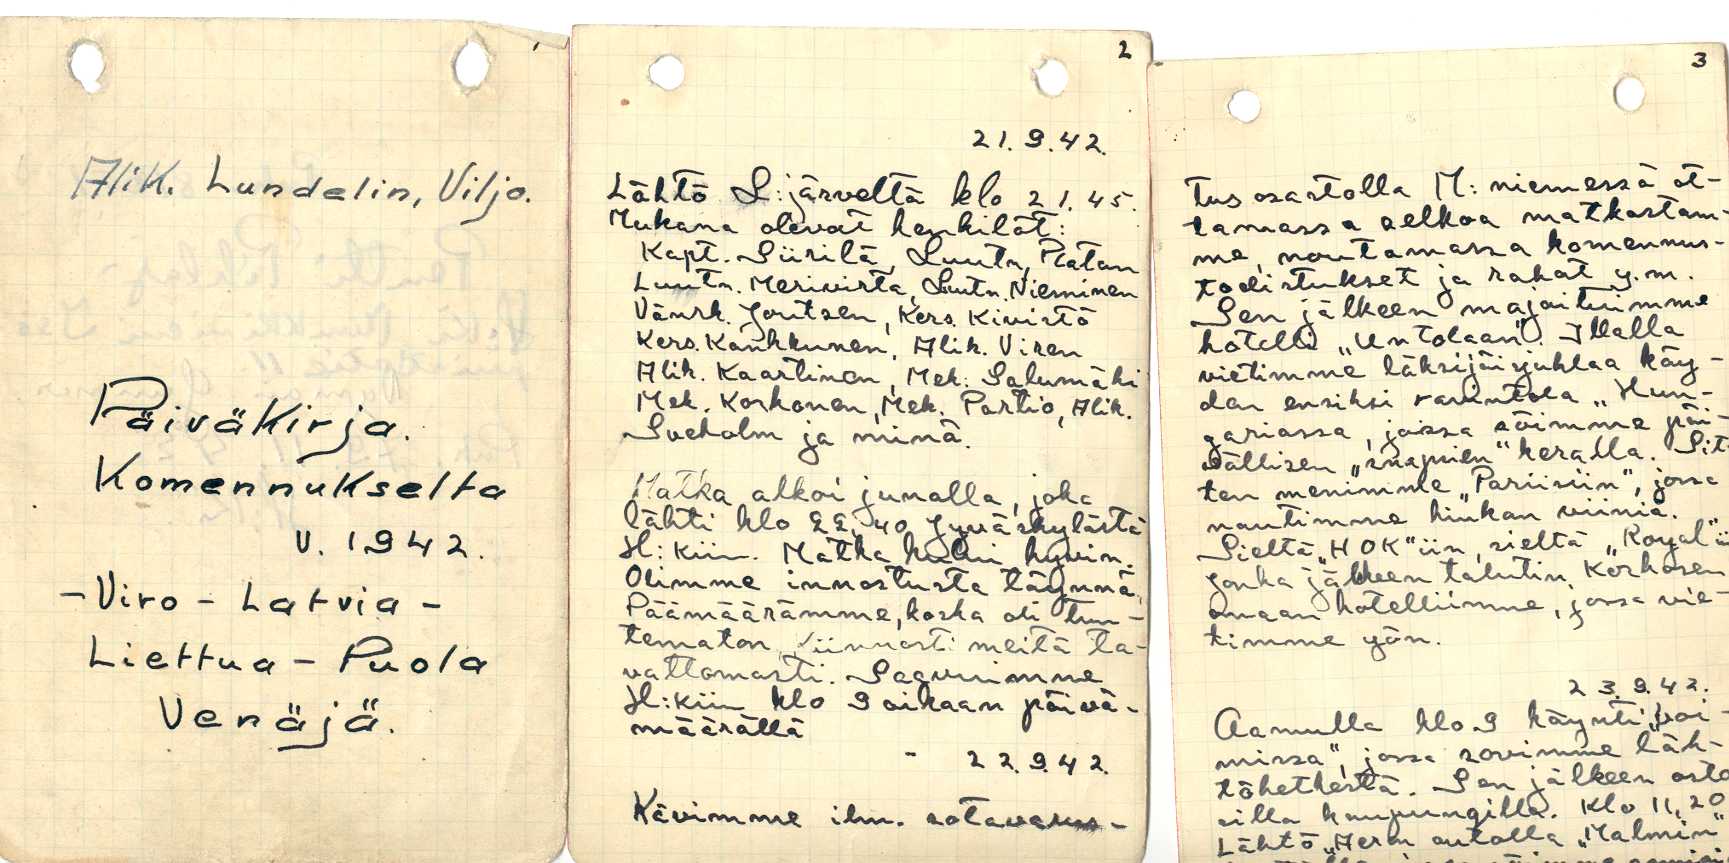 Alik. Lundelin, Viljo.
Päiväkirja.
Komennukselta
V. 1942.
- Viro - Latvia -
Liettua - Puola
Venäjä.
2
21.9.42.
Lähtö L:järveltä klo 21.45.
Mukana olevat henkilöt:
Kapt. Siirilä, Luutn. Platan
Luutn. Merivirta, Luutn. Nieminen
Vänrk. Joutsen, Kers. Kivistö
Kers. Kankkunen, Alik. Viren
Alik. Kaartinen, Mek. Salumäki
Mek. Korhonen, Mek. Partio, Alik.
Sveholm ja minä.
Matka alkoi junalla, joka
lähti klo 22,40 Jyväskylästä
H:kiin. Matka kului hyvin.
Olimme innostusta täynnä,
Päämäärämme, koska oli tun-
tematon, kiinnosti meitä ta-
vattomasti. Saavuimme
H:kiin klo 9 aikaan päivä-
määrällä
- 22.9.42.
Kävimme ilm. sotavarus-
3
tusosastolla M:niemessä ot-
tamassa selkoa matkastam-
me, noutamassa komennus-
todistukset ja rahat y.m.
Sen jälkeen majoituimme
hotelli „Untolaan". Illalla
vietimme läksijäisjuhlaa käy-
den ensiksi ravintola „Hun-
gariassa, jossa söimme päi-
vällisen „snapsien" keralla. Sit-
ten menimme „Pariisiin", jossa
nautimme hiukan viiniä.
Sieltä „HOK"iin, sieltä „Royal"iin
jonka jälkeen talutin Korhosen
omaan hotelliimme, jossa vie-
timme yön.
23.9.42.
Aamulla klo 9 käynti „Voi-
missa", jossa sovimme läh-
töhetkestä. Sen jälkeen osto
silla kaupungilla. Klo 11,20
Lähtö „Merc autolla „Malmin"